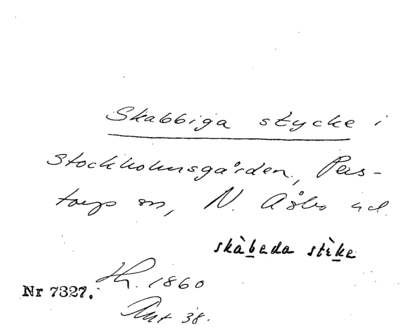 Skabbiga stycke i
Stockholmsgården, Pers-
torps sn, N. Åsbo hd.
skàbeda stìke
Nr 7327.
1860
38.